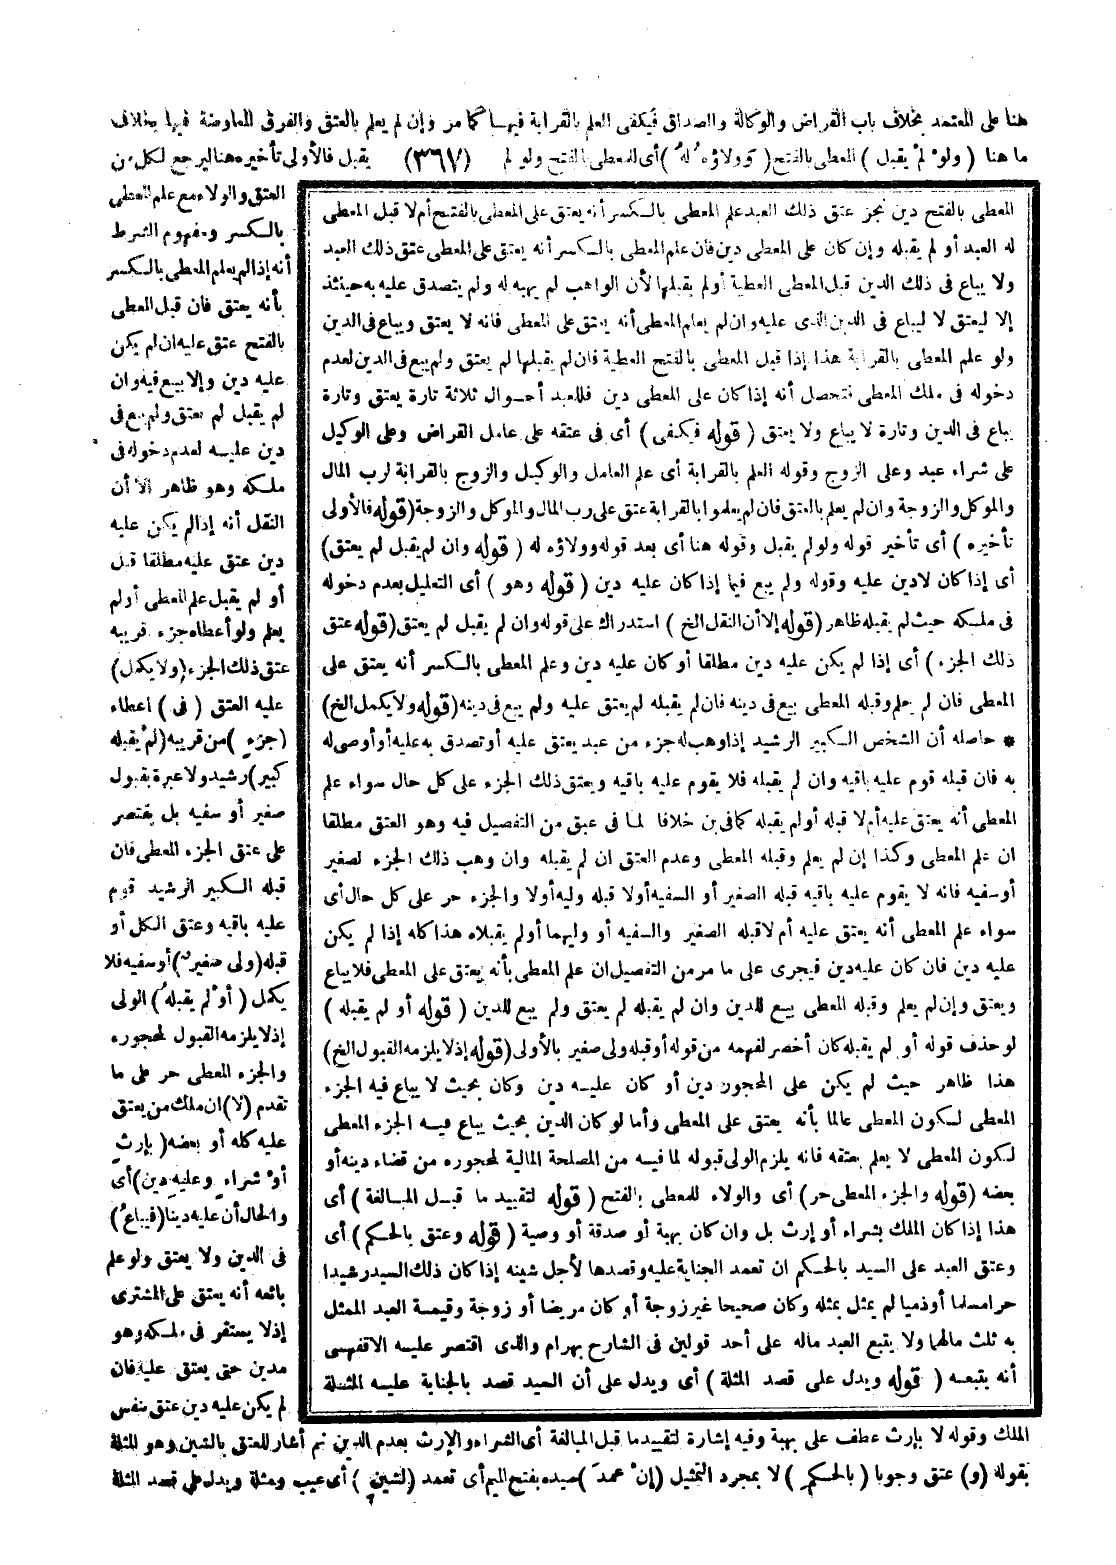 هنا على المعتمد بخلاف باب القراض والوكالة والصداق فيكفى العلم بالقرابة فيهـا كما مر وإن لم يعلم بالعتق والفرق المعاوضة فيها بخلاف
ما هنا ( ولو لم يقبل ) المعطى بالفتح ( وولاؤه له ) أى للمعطى بالفتح ولو لم (٣٦٧) يقبل فالأولى تأخيره هنا ليرجع لكل من
العتق والولاء مع علم المعطى
بالـكسر ومفهوم الشرط
أنه إذا لم يعلم المعطى بالـكسر
بأنه يعتق فان قبل المعطى
بالفتح عتق عليه ان لم يكن
عليه دين وإلا بيع فيه وان
لم يقبل لم يعتق ولم بع فى
دين عليـه لعدم دخوله فى
ملـكه وهو ظاهر الا أن
النقل أنه إذا لم يكن عليه
دين عتق عليه مطلقا قبل
أو لم يقبل علم المعطى أولم
يعلم ولو أعطاه جزء قريبه
عتق ذلك الجزء (ولا يكمل)
عليه العتق ( فى ) اعطاء
(جزء) من قريبه (لم يقبله
كبير) رشيد ولا عبرة بقبول
صغير أو سفيه بل يقتصر
على عتق الجزء المعطى فان
قبله الـكبير الرشيد قوم
عليه باقيه وعتق الكل أو
قبله (ولى صغير) أو سفيه فلا
يكمل ( أو لم يقبله ) الولى
إذ لا يلزمه القبول لمحجوره
والجزء المعطى حر على ما
تقدم (لا) ان ملك من يعتق
عليه كله أو بعضه ( بإرث
أو شراء وعليه دين) أى
والحال أن عليه دينا (فيباع)
فى الدين ولا يعتق ولو علم
بائعه أنه يعتق على المشترى
إذ لا يستقر فى ملـكه وهو
مدين حتى يعتق عليه فان
لم يكن عليه دين عتق بنفس
الملك وقوله لا بإرث عطف على بهبة وفيه إشارة لتقييد ما قبل المبالغة أى الشراء والإرث بعدم الدين ثم أشار للعتق بالشين وهو المثلة
بقوله (و) عتق وجوبا ( بالحكم ) لا بمجرد التمثيل (إن عمد) سيده بفتح الميم أى تعمد (لشين ) أى عيب ومثلة ويدل على قصد المثلة
المعطى بالفتح دين نجز عتق ذلك العبد علم المعطى بالـكسر أنه يعتق على المعطى بالفتـح أم لا قبل المعطى
له العبد أو لم يقبله وإن كان على المعطى دين فان علم المعطى بالـكسر أنه يعتق على المعطى عتق ذلك العبد
ولا يباع فى ذلك الدين قبل المعطى العطية أولم يقبلها لأن الواهب لم يهبه له ولم يتصدق عليه به حينئذ
إلا ليعتق لا ليباع فى الدين الذى عليه وان لم يعلم المعطى أنه يعتق على المعطى فانه لا يعتق ويباع فى الدين
ولو علم المعطى بالقرابة هذا إذا قبل المعطى بالفتح العطية فان لم يقبلها لم يعتق ولم بيع فى الدين لعدم
دخوله فى ملك المعطى فتحصل أنه إذا كان على المعطى دين فللعبد أحـوال ثلاثة تارة يعتق وتارة
يباع فى الدين وتارة لا يباع ولا يعتق ( قوله فيكفى ) أى فى عتقه على عامل القراض وعلى الوكيل
على شراء عبد وعلى الزوج وقوله العلم بالقرابة أى علم العامل والوكيل والزوج بالقرابة لرب المال
والموكل والزوجة وان لم يعلم بالعتق فان لم يعلموا بالقرابة عتق على رب المال والموكل والزوجة (قوله فالأولى
تأخيره ) أى تأخير قوله ولو لم يقبل وقوله هنا أى بعد قوله وولاؤه له ( قوله وان لم يقبل لم يعتق)
أى إذا كان لا دين عليه وقوله ولم يبع فيما إذا كان عليه دين ( قوله وهو ) أى التعليل بعدم دخوله
فى ملـكه حيث لم يقبله ظاهر (قوله إلا أن النقل الخ ) استدراك على قوله وان لم يقبل لم يعتق (قوله عتق
ذلك الجزء ) أى إذا لم يكن عليه دين مطلقا أو كان عليه دين وعلم المعطى بالـكسر أنه يعتق على
المعطى فان لم يعلم وقبله المعطى بيع فى دينه فان لم يقبله لم يعتق عليه ولم يبع فى دينه (قوله ولا يكمل الخ)
* حاصله أن الشخص الـكبير الرشيد إذا وهب له جزء من عبد يعتق عليه أو تصدق به عليه أو أوصى له
به فان قبله قوم عليه باقيه وان لم يقبله فلا يقوم عليه باقيه ويعتق ذلك الجزء على كل حال سواء علم
المعطى أنه يعتق عليه أم لا قبله أولم يقبله كما فى بن خلافا لما فى عبق من التفصيل فيه وهو العتق مطلقا
ان علم المعطى وكذا إن لم يعلم وقبله المعطى وعدم العتق ان لم يقبله وان وهب ذلك الجزء لصغير
أو سفيه فانه لا يقوم عليه باقيه قبله الصغير أو السفيه أولا قبله وليه أولا والجزء حر على كل حال أى
سواء علم المعطى أنه يعتق عليه أم لا قبله الصغير والسفيه أو وليهما أولم يقبلاه هذا كله إذا لم يكن
عليه دين فان كان عليه دين فيجرى على ما مر من التفصيل ان علم المعطى بأنه يعتق على المعطى فلا يباع
ويعتق وإن لم يعلم وقبله المعطى بيـع للدين وان لم يقبله لم يعتق ولم بيع للدين ( قوله أو لم يقبله )
لو حذف قوله أو لم يقبله كان أخصر لفهمه من قوله أو قبله ولى صغير بالأولى (قوله إذ لا يلزمه القبول الخ)
هذا ظاهر حيث لم يكن على المحجور دين أو كان عليـه دين وكان بحيث لا يباع فيه الجزء
المعطى لـكون المعطى عالما بأنه يعتق على المعطى وأما لو كان الدين بحيث يباع فيـه الجزء المعطى
لـكون المعطى لا يعلم بعتقه فانه يلزم الولى قبوله لما فيـه من المصلحة المالية لمحجوره من قضاء دينه أو
بعضه (قوله والجزء المعطى حر) أى والولاء للمعطى بالفتح ( قوله لتقييد ما قبـل المبـالغة ) أى
هذا إذا كان الملك بشراء أو إرث بل وان كان بهبة أو صدقة أو وصية ( قوله وعتق بالحـكم ) أى
وعتق العبد على السيد بالحـكم ان تعمد الجناية عليه وقصدها لأجل شينه إذا كان ذلك السيد رشيدا
حرا مسلما أو ذميا لم يمثل بمثله وكان صحيحا غير زوجة أو كان مريضا أو زوجة وقيمة العبد الممثل
به ثلث مالهما ولا يتبع العبد ماله على أحد قولين فى الشارح بهرام والذى اقتصر عليـه الاقفهسى
أنه يتبعـه ( قوله ويدل على قصد المثلة ) أى ويدل على أن السيد قصد بالجناية عليـه المثـلة